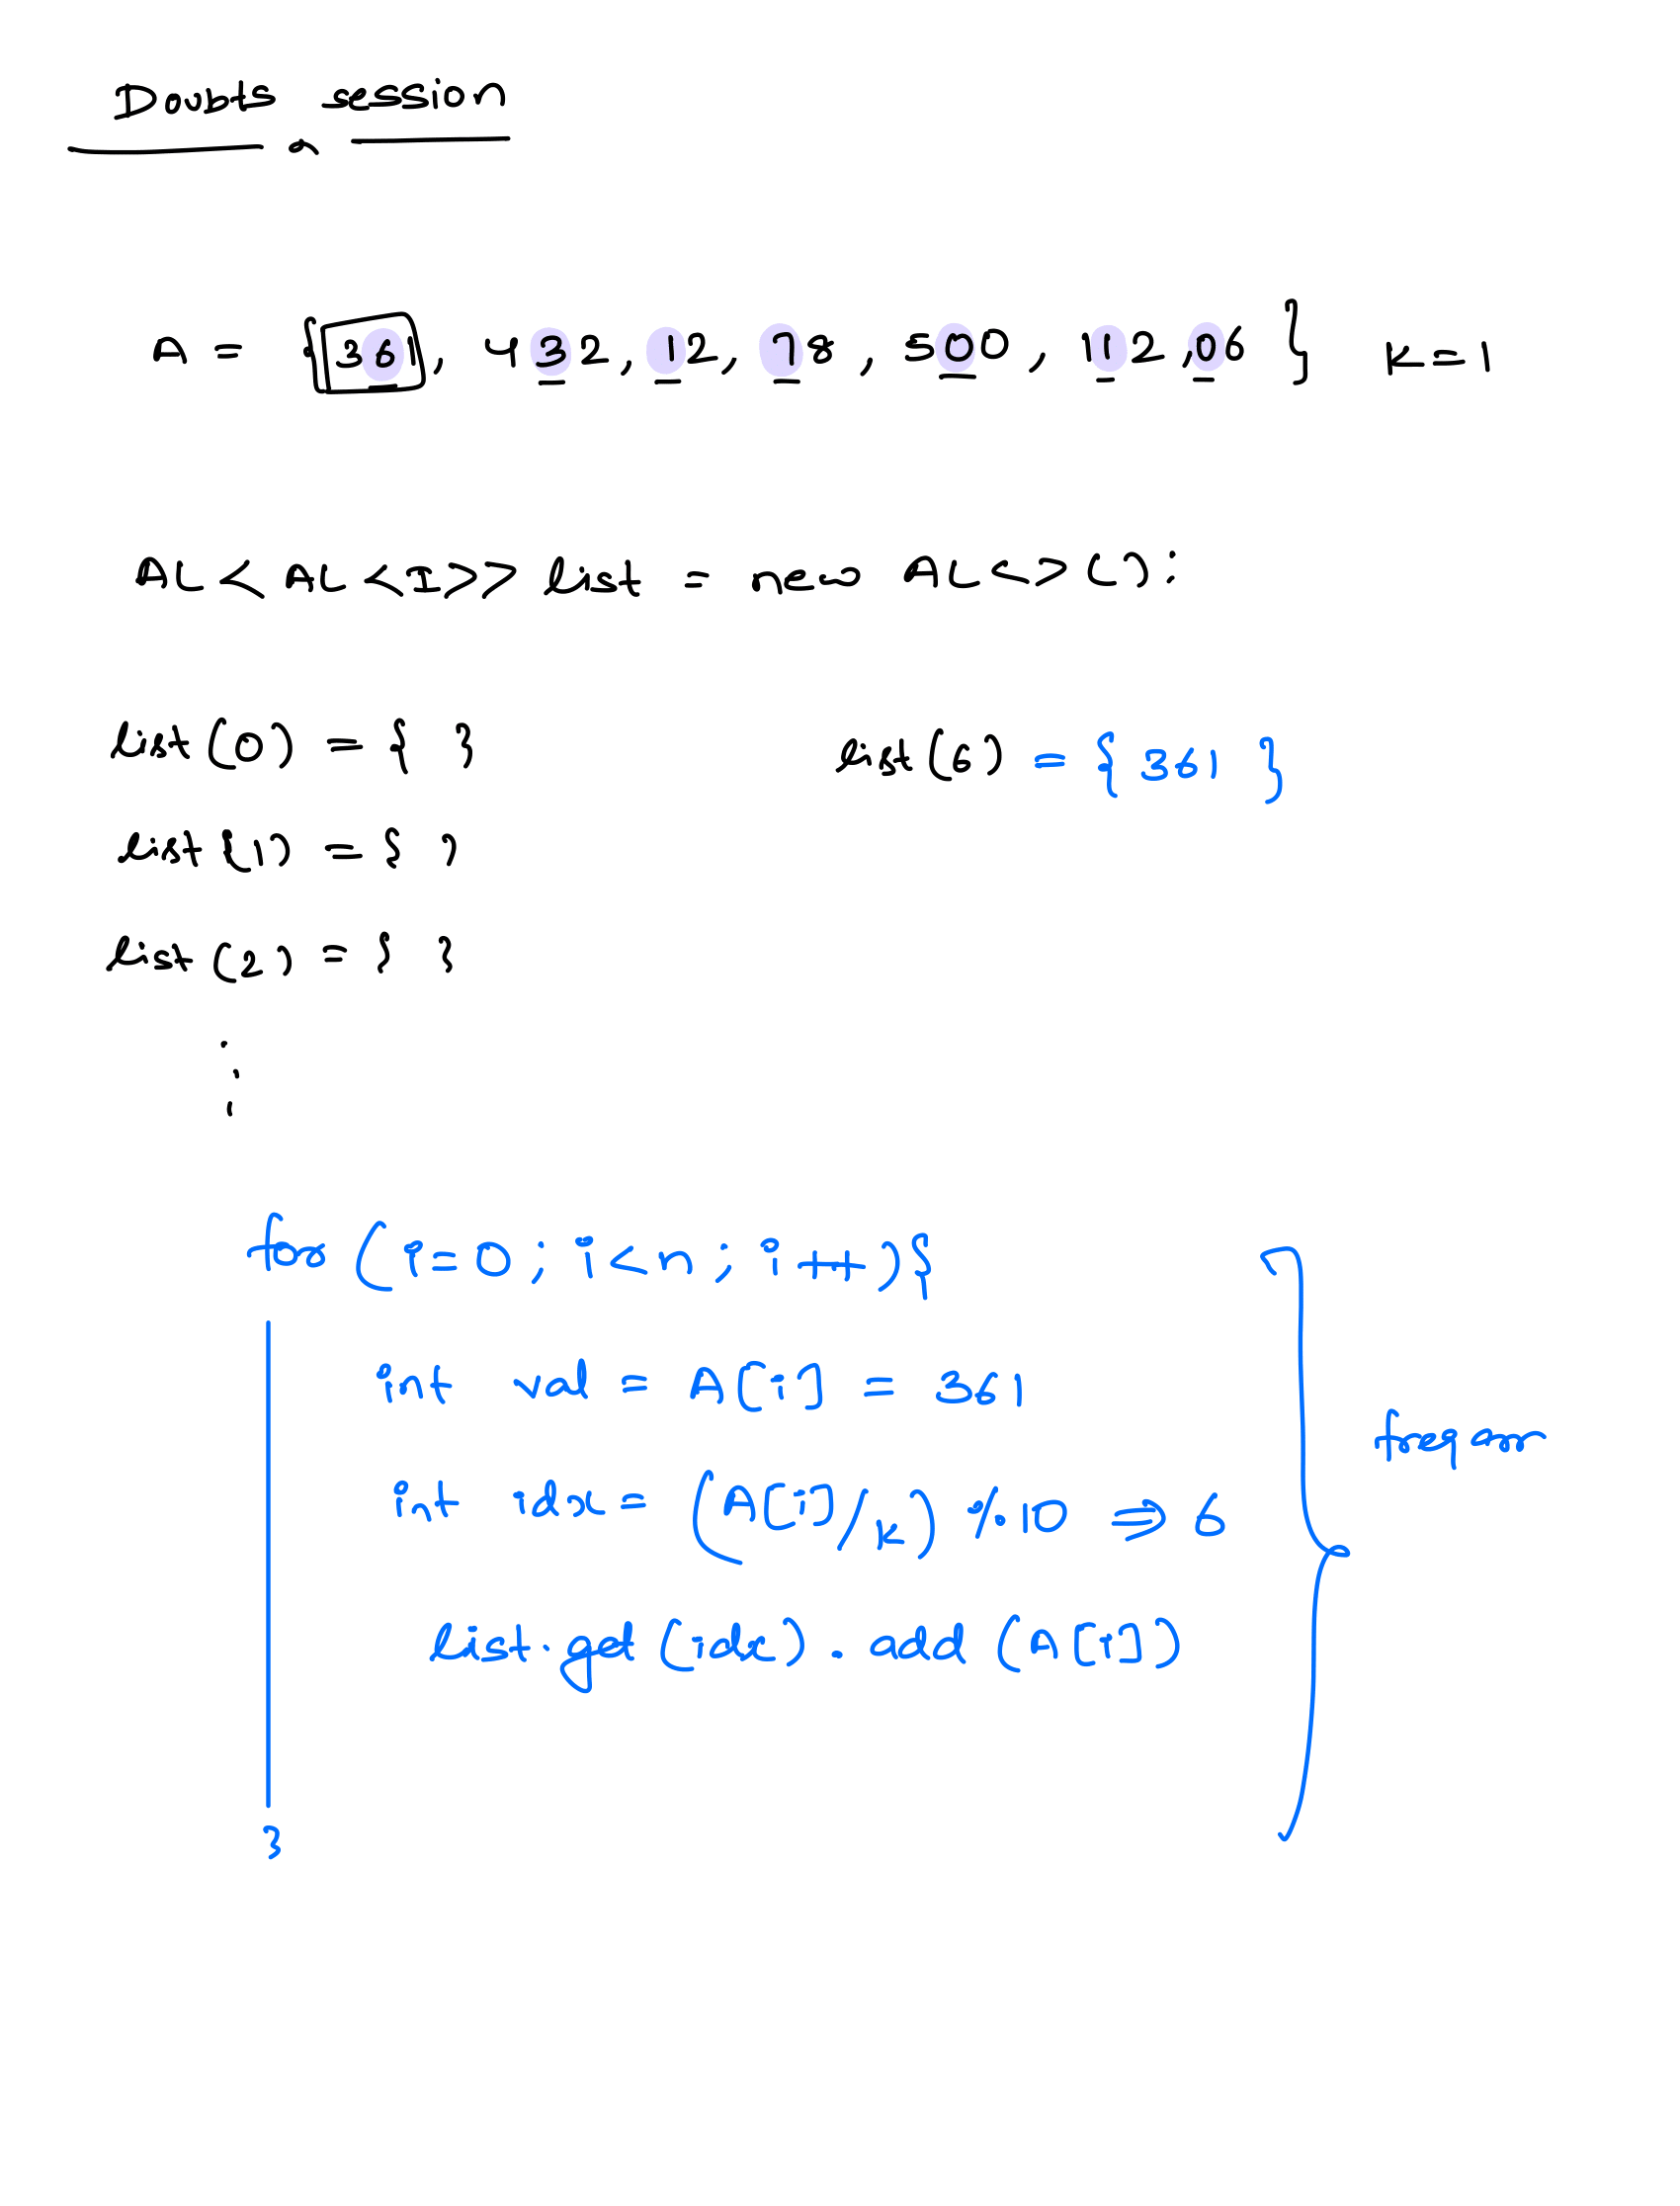 Doubts session
A = {361, 432, 12, 78, 500, 112, 06 } K=1
AL<AL<I>> list = new AL<>():
list(0) = { }
list(6) = { 361 }
list(1) = { }
list(2) = { }
for (i=0; i<n; i++){
int val = A[i] = 361
int idx = (A[i]/K) %10 => 6
list.get(idx).add(A[i])
}
freqarr